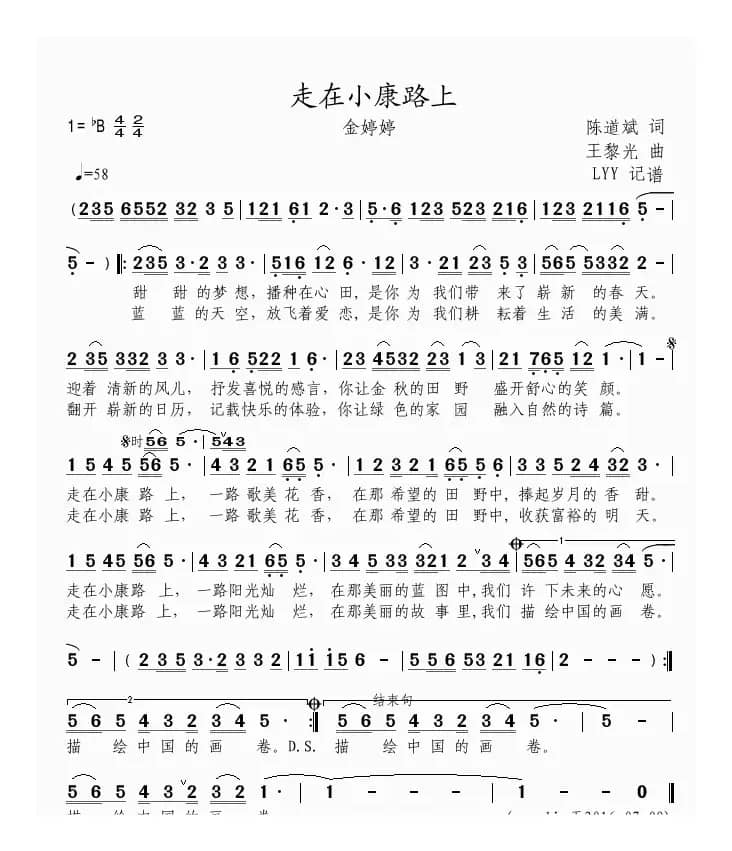 走在小康路上
1= ♭B 4/4 2/4 金婷婷 陈道斌 词
王黎光 曲
♩=58 LYY 记谱
( 235 6552 32 3 5 | 121 61 2·3 | 5·6 123 523 216 | 123 2116 5 – |
5 – ) ‖: 235 3·2 3 3· | 516 12 6·12 | 3·21 23 5 3 | 565 5332 2 – |
甜 甜的梦想，播种在心田，是你为 我们带 来了崭 新的春天。
蓝 蓝的天空，放飞着爱恋，是你为 我们耕 耘着生 活的美满。
2 35 332 3 3· | 1 6 522 1 6· | 23 4532 23 1 3 | 21 765 12 1· | 1 –
迎着 清新的风儿， 抒发喜悦的感言，你让金 秋的田 野 盛开舒心的笑 颜。
翻开 崭新的日历， 记载快乐的体验，你让绿 色的家 园 融入自然的诗 篇。
𝄋时 56 5· | 543
1 5 4 5 56 5· | 4 3 2 1 65 5· | 1 2 3 2 1 65 5 6 | 3 3 5 2 4 32 3· |
走在小康 路 上， 一路 歌美 花 香， 在那 希望的 田 野中，捧起岁月的 香 甜。
走在小康 路 上， 一路 歌美 花 香， 在那 希望的 田 野中，收获富裕的 明 天。
1 5 45 56 5· | 43 21 65 5· | 34 5 5 3321 2 3 4 | 565 4 32 34 5· |
走在小康 路 上， 一路阳光灿 烂， 在那美丽的蓝 图中，我们 许 下未来的心 愿。
走在小康 路 上， 一路阳光灿 烂， 在那美丽的故 事里，我们 描 绘中国的画 卷。
5 – | ( 2 3 5 3·2 3 3 2 | 1 1 1 5 6 – | 5 5 6 5 3 5 2 1 6 | 2 – – ) :‖
2 结束句
5 6 5 4 3 2 3 4 5· :‖ 5 6 5 4 3 2 3 4 5· | 5 –
描 绘中国的画 卷。D.S. 描 绘中国的画 卷。
5 6 5 4 3 2 3 2 1· | 1 – – – | 1 – – 0 ‖